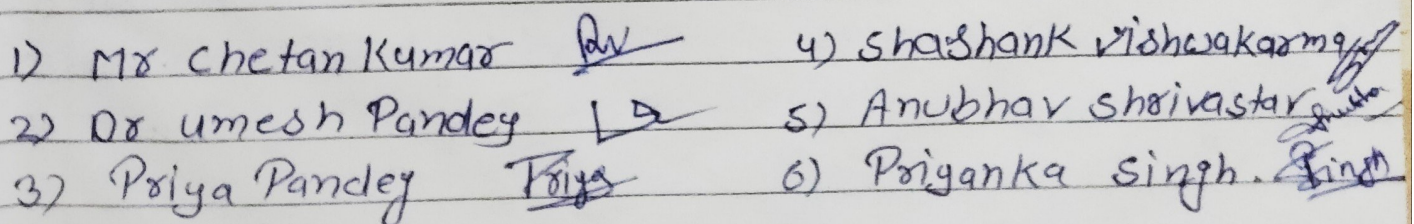 1) Mr Chetan Kumar
2) Dr Umesh Pandey
3) Priya Pandey Priya
4) Shashank Vishwakarma
5) Anubhav Shrivastav
6) Priyanka Singh. Singh